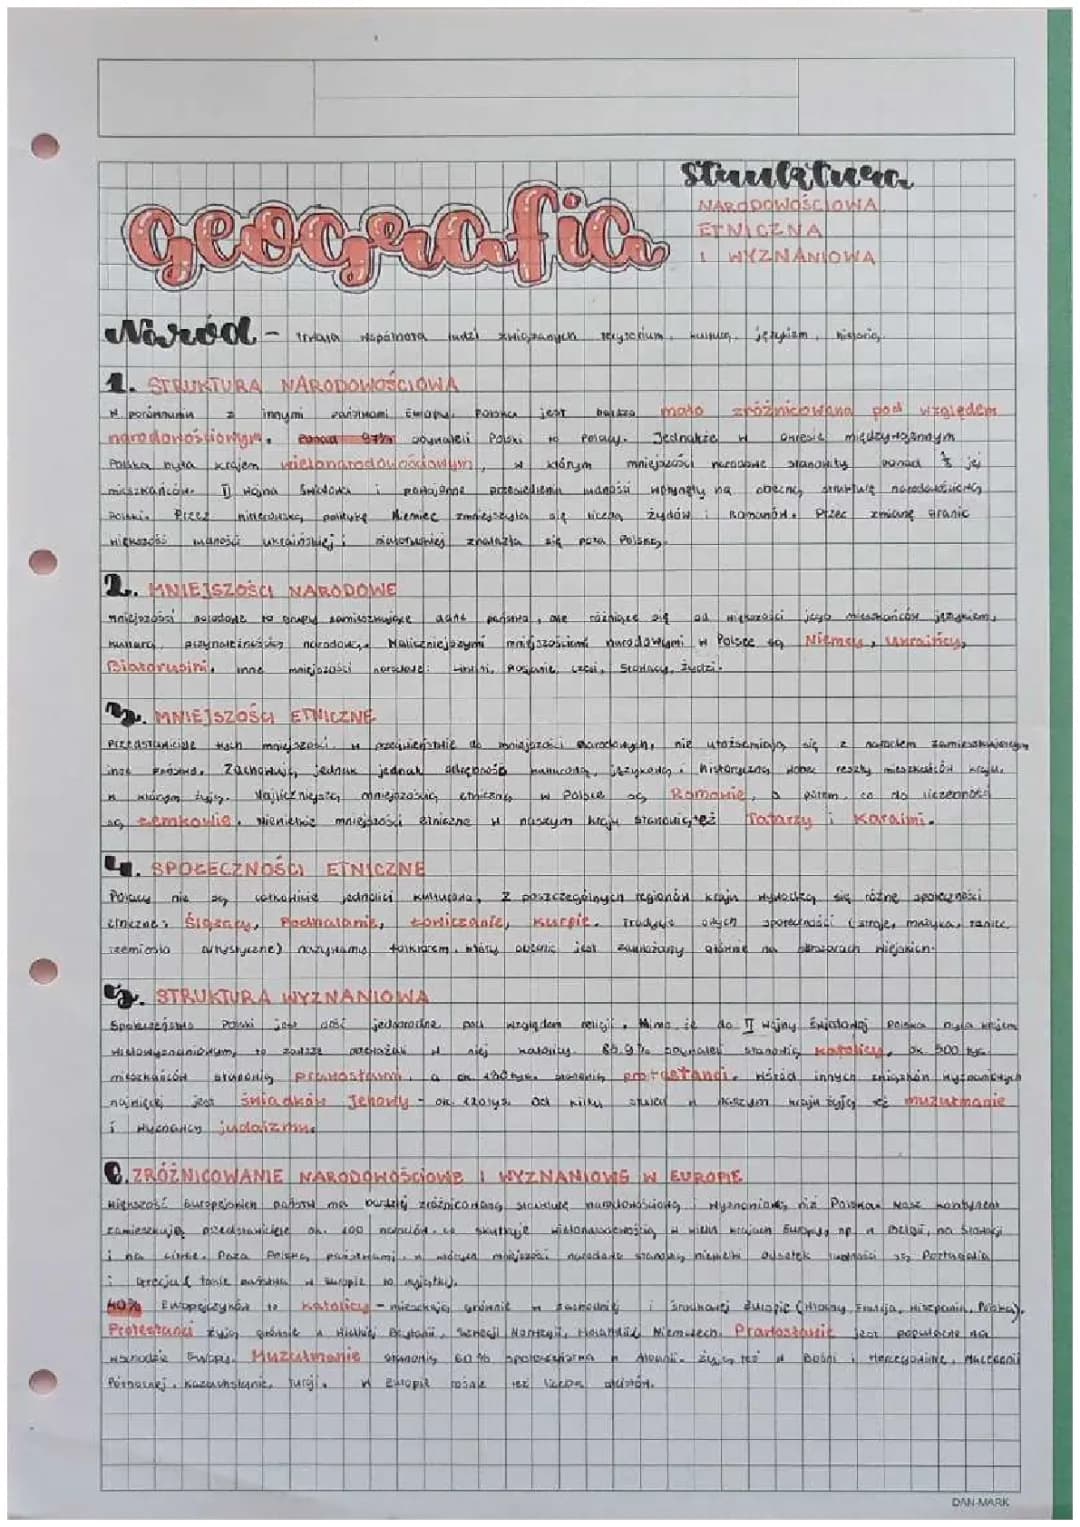 geografia
struktura
NARODOWOŚCIOWA
ETNICZNA
I WYZNANIOWA
Naród - trwała wspólnota ludzi związanych terytorium, kulturą, językiem, historią,
1. STRUKTURA NARODOWOŚCIOWA
W porównaniu z innymi państwami Europy, Polska jest bardzo mało zróżnicowana pod względem
narodowościowym. Ponad 97% obywateli Polski to Polacy. Jednakże w okresie międzywojennym
Polska była krajem wielonarodowościowym, w którym mniejszości narodowe stanowiły ponad ⅓ jej
mieszkańców. II Wojna Światowa i powojenne przesiedlenia ludności wpłynęły na obecną strukturę narodowościową
Polski. Przez hitlerowską politykę Niemiec zmniejszyła się liczba żydów i Romanów. Przez zmianę granic
większość ludności ukraińskiej i białoruskiej znalazła się poza Polską.
2. MNIEJSZOŚCI NARODOWE
mniejszości narodowe to grupy zamieszkujące dane państwo, ale różniące się od większości jego mieszkańców językiem,
kulturą, przynależnością narodową. Najliczniejszymi mniejszościami narodowymi w Polsce są Niemcy, Ukraińcy,
Białorusini, inne mniejszości narodowe: Litwini, Rosjanie, czesi, Słowacy, żydzi.
3. MNIEJSZOŚCI ETNICZNE
Przedstawiciele tych mniejszości, w przeciwieństwie do mniejszości narodowych, nie utożsamiają się z narodem zamieszkującym
inne państwo. Zachowują jednak jednak odrębność kulturową, językową i historyczną wobec reszty mieszkańców kraju,
w którym żyją. Najliczniejszą mniejszością etniczną w Polsce są Romowie, a potem, co do liczebności
są Łemkowie. Niewielkie mniejszości etniczne w naszym kraju stanowią też Tatarzy i Karaimi.
4. SPOŁECZNOŚCI ETNICZNE
Polacy nie są całkowicie jednolici kulturowo, z poszczególnych regionów kraju wywodzą się różne społeczności
etniczne: Ślązacy, Podhalanie, Łowiczanie, Kurpie. Tradycje owych społeczności (stroje, muzyka, taniec,
rzemiosło artystyczne) nazywamy folklorem, który obecnie jest zauważany głównie na obszarach wiejskich.
5. STRUKTURA WYZNANIOWA
Społeczeństwo Polski jest dość jednorodne pod względem religii. Mimo, że do II Wojny Światowej Polska była krajem
wielowyznaniowym, to zawsze przeważali w niej katolicy. obywateli stanowią katolicy, ok. 500 tys.
mieszkańców stanowią prawosławni, a ok. 130 tys. stanowią protestanci. Wśród innych związków wyznaniowych
największy jest świadków Jehowy - ok. Od kilku stuleci w naszym kraju żyją też muzułmanie
i wyznawcy judaizmu.
6. ZRÓŻNICOWANIE NARODOWOŚCIOWE I WYZNANIOWE W EUROPIE
Większość europejskich państw ma bardziej zróżnicowaną strukturę narodowościową i wyznaniową niż Polska. Nasz kontynent
zamieszkują przedstawiciele ok. 100 narodów, co skutkuje wielonarodowością w wielu krajach Europy, np w Belgii, na Słowacji
i na Litwie. Poza Polską państwami, w których mniejszości narodowe stanowią niewielki odsetek ludności są Portugalia
i Grecja (takie państwa w Europie to wyjątki).
40% Europejczyków to katolicy - mieszkają głównie w zachodniej i środkowej Europie (Włochy, Francja, Hiszpania, Polska).
Protestanci żyją głównie w Wielkiej Brytanii, Szwecji Norwegii, Holandii, Niemczech. Prawosławie jest popularne na
wschodzie Europy. Muzułmanie stanowią 60% społeczeństwa w Albanii. żyją też w Bośni i Hercegowinie, Macedonii
Północnej, Kazachstanie, Turcji. W Europie rośnie też liczba ateistów.
DAN-MARK